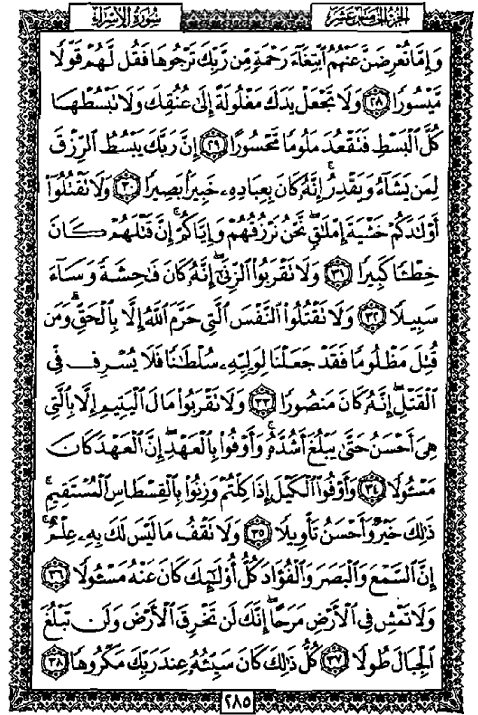 الجزء الخامس عشر
سورة الإسراء
وَإِمَّا تُعْرِضَنَّ عَنْهُمُ ٱبْتِغَآءَ رَحْمَةٍ مِّن رَّبِّكَ تَرْجُوهَا فَقُل لَّهُمْ قَوْلًا
مَّيْسُورًا ٢٨ وَلَا تَجْعَلْ يَدَكَ مَغْلُولَةً إِلَىٰ عُنُقِكَ وَلَا تَبْسُطْهَا
كُلَّ ٱلْبَسْطِ فَتَقْعُدَ مَلُومًا مَّحْسُورًا ٢٩ إِنَّ رَبَّكَ يَبْسُطُ ٱلرِّزْقَ
لِمَن يَشَآءُ وَيَقْدِرُ إِنَّهُۥ كَانَ بِعِبَادِهِۦ خَبِيرًۢا بَصِيرًا ٣٠ وَلَا تَقْتُلُوٓا۟
أَوْلَٰدَكُمْ خَشْيَةَ إِمْلَٰقٍ نَّحْنُ نَرْزُقُهُمْ وَإِيَّاكُمْ إِنَّ قَتْلَهُمْ كَانَ
خِطْـًٔا كَبِيرًا ٣١ وَلَا تَقْرَبُوا۟ ٱلزِّنَىٰٓ إِنَّهُۥ كَانَ فَٰحِشَةً وَسَآءَ
سَبِيلًا ٣٢ وَلَا تَقْتُلُوا۟ ٱلنَّفْسَ ٱلَّتِى حَرَّمَ ٱللَّهُ إِلَّا بِٱلْحَقِّ وَمَن
قُتِلَ مَظْلُومًا فَقَدْ جَعَلْنَا لِوَلِيِّهِۦ سُلْطَٰنًا فَلَا يُسْرِف فِّى
ٱلْقَتْلِ إِنَّهُۥ كَانَ مَنصُورًا ٣٣ وَلَا تَقْرَبُوا۟ مَالَ ٱلْيَتِيمِ إِلَّا بِٱلَّتِى
هِىَ أَحْسَنُ حَتَّىٰ يَبْلُغَ أَشُدَّهُۥ وَأَوْفُوا۟ بِٱلْعَهْدِ إِنَّ ٱلْعَهْدَ كَانَ
مَسْـُٔولًا ٣٤ وَأَوْفُوا۟ ٱلْكَيْلَ إِذَا كِلْتُمْ وَزِنُوا۟ بِٱلْقِسْطَاسِ ٱلْمُسْتَقِيمِ
ذَٰلِكَ خَيْرٌ وَأَحْسَنُ تَأْوِيلًا ٣٥ وَلَا تَقْفُ مَا لَيْسَ لَكَ بِهِۦ عِلْمٌ
إِنَّ ٱلسَّمْعَ وَٱلْبَصَرَ وَٱلْفُؤَادَ كُلُّ أُو۟لَٰٓئِكَ كَانَ عَنْهُ مَسْـُٔولًا ٣٦
وَلَا تَمْشِ فِى ٱلْأَرْضِ مَرَحًا إِنَّكَ لَن تَخْرِقَ ٱلْأَرْضَ وَلَن تَبْلُغَ
ٱلْجِبَالَ طُولًا ٣٧ كُلُّ ذَٰلِكَ كَانَ سَيِّئُهُۥ عِندَ رَبِّكَ مَكْرُوهًا ٣٨
٢٨٥